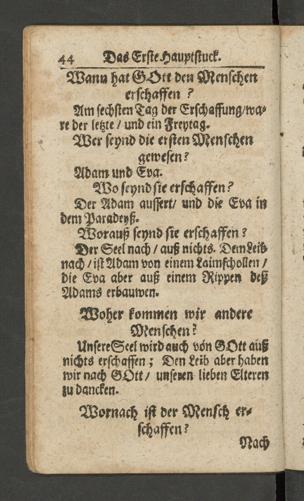 44 Das Erste Hauptstuck.
Wann hat GOtt den Menschen
erschaffen ?
Am sechsten Tag der Erschaffung/wa-
re der letzte / und ein Freytag.
Wer seynd die ersten Menschen
gewesen?
Adam und Eva.
Wo seynd sie erschaffen?
Der Adam aussert/ und die Eva in
dem Paradeyß.
Worauß seynd sie erschaffen?
Der Seel nach / auß nichts. Dem Leib
nach / ist Adam von einem Laimschollen /
die Eva aber auß einem Rippen deß
Adams erbauwen.
Woher kommen wir andere
Menschen?
Unsere Seel wird auch von GOtt auß
nichts erschaffen ; Den Leib aber haben
wir nach GOtt / unseren lieben Elteren
zu dancken.
Wornach ist der Mensch er-
schaffen?
Nach